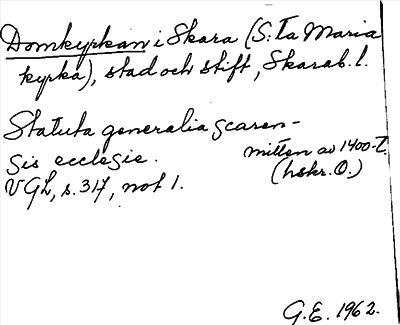 Domkyrkan i Skara (S:ta Maria
kyrka), stad och stift, Skarab. l.
Statuta generalia scaren-
sis ecclesie. mitten av 1400-t.
VGL, s. 317, not 1. (hskr. O.)
G.E. 1962.